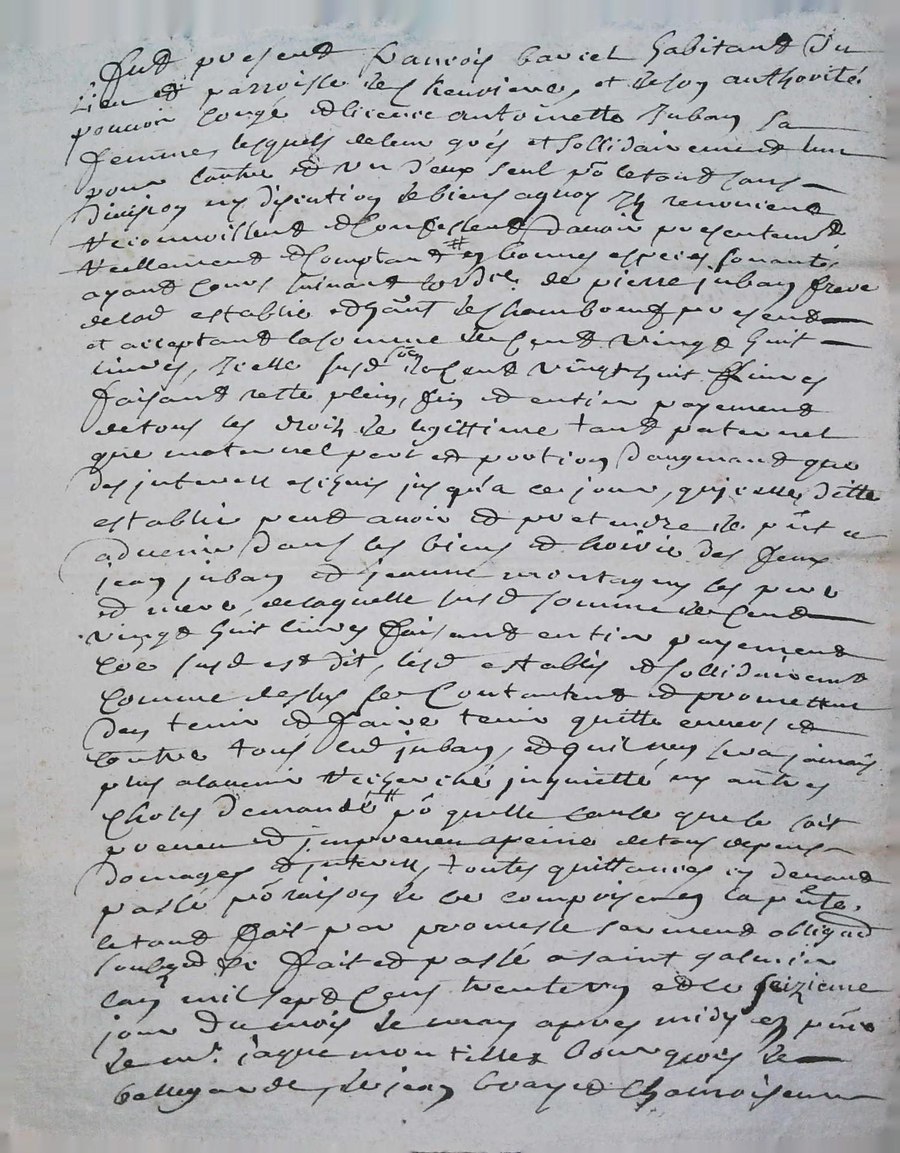 fut present francois barcel habitant du
lieu et parroisse de et de son authorité
pouvoir congé et licence antoinette Juban sa
femme, lesquels de leur grés et sollidairement lun
pour lautre et un d'eux seul po le tout sans
division ny discution de biens aquoy Ilz renoncent
reconnoissent et confessent davoir presentemt
reellement et comptant # en bonnes especes sonante
ayand cours suivant lordce de pierre juban frere
delad establie et hant de chambeuf present
et acceptand la somme de cent vingt huit
livres, Icelle susd soe de cent vingt huit livres
faisand reste plein, fin et entier payement
de tous les droits de legittime tant paternel
que maternel part et portion daugmand que
des interests jusqua ce jour, qu'icelle ditte
establie peut avoir et pretendre de pnt a
advenir dans les biens et hoirie des feux
jean juban et jeanne montagny les pere
et mere, de laquelle susd somme de cent
vingt huit livres faisand entier payement
co'e susd est dit, lesd establis et sollidairement
comme dessus se contantent et promettent
den tenir et faire tenir quitte envers et
contre tous led juban, et quil nen sera jamais
plus alavenir recherché inquietté ny autres
choses demandé # po quelle cause que ce soit
preveue et impreveue apeine de tous depens
domages et interests, toutes quittances cy devand
passé po raison de ce comprises en la pnte,
le tout fait par promesse sermend obligaon
soubzon Fait et passé a saint galmier
lan mil sept cens trente un et le seizieme
jour du mois de may apres midy en pnce
de mr. jaque montillez bourgeois de
bellegarde, de jean et